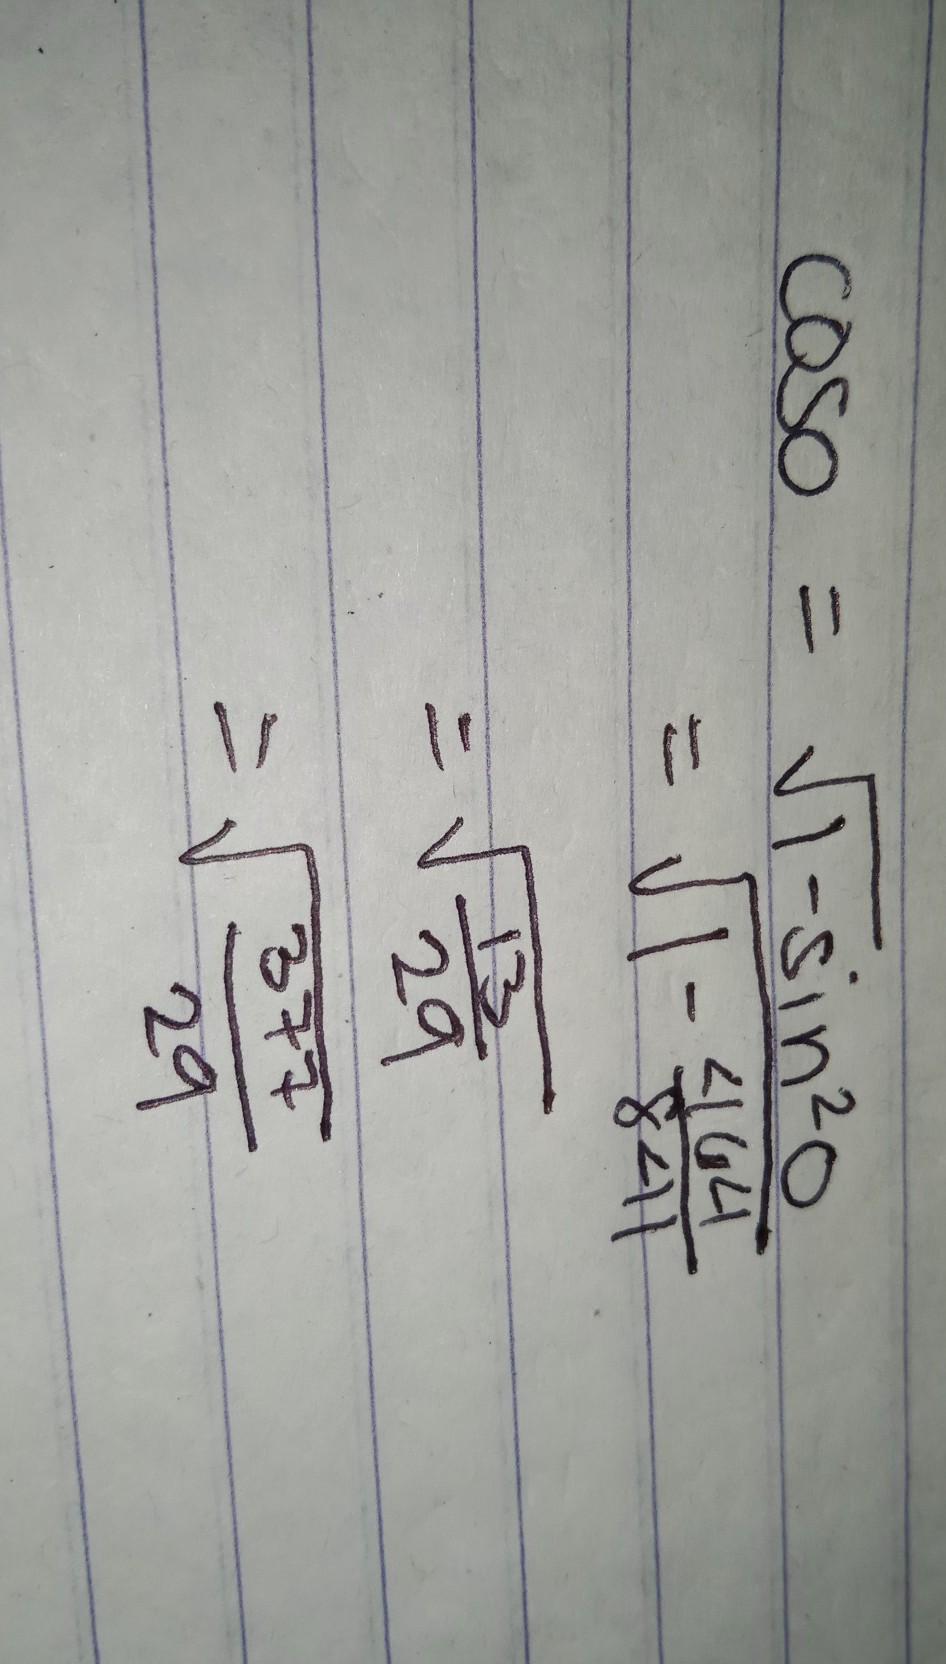 coso = √1-sin²0
= √1 - 464/841
= √13/29
= √377/29